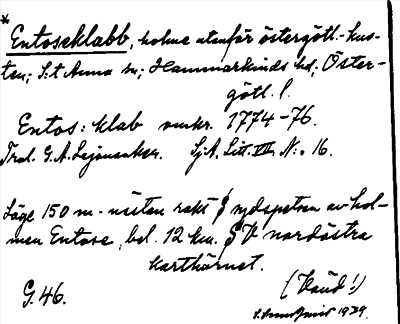 *
Entoseklabb, holme utanför östergötl.-kus-
ten; S:t Anna sn; Hammarkinds hd; Öster-
götl. l.
Entos: klab omkr. 1774-76.
Trol. G.A. Lejonanker. Sj.A. Litt. VII N:o 16.
Läge 150 m. nästan rakt S sydspetsen av hol-
men Entose, bel. 12 km. SV nordöstra
karthörnet.
G. 46.
1939